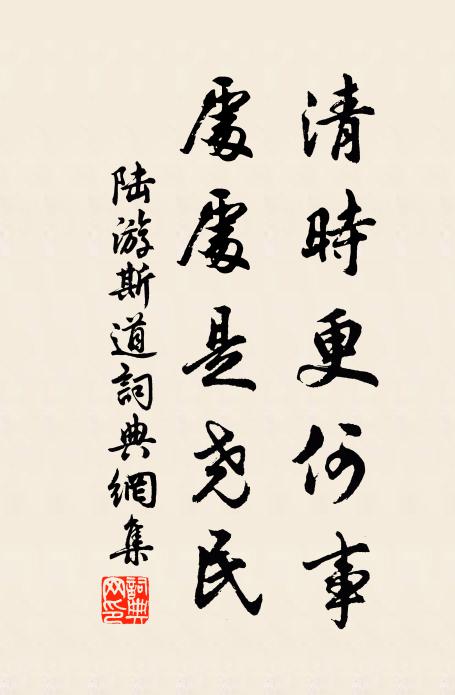 清時更何事
處處是尧民
陆游斯道詞典網集
詞典网印